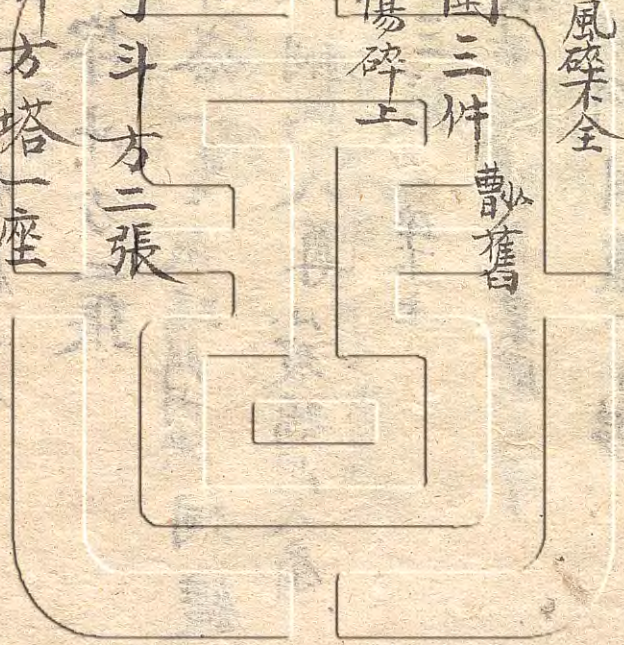 風碎不全
三件 舊
傷碎上
斗方二張
方塔一座